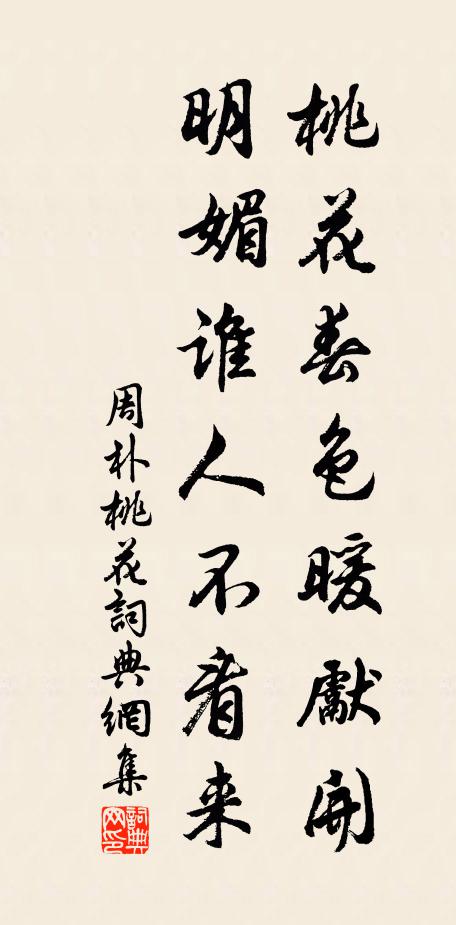 桃花春色暖獻開
明媚誰人不看来
周朴桃花詞典網集
詞典网印